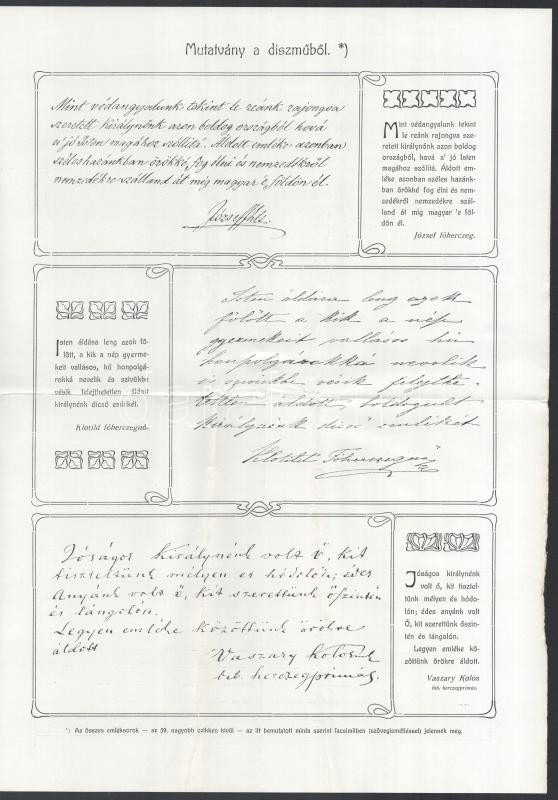 Mutatvány a diszműből. *)
Mint védangyalunk tekint le reánk rajongva
szeretett királynőnk azon boldog országból hová
a' jó Isten magához szólitá. Áldott emléke azonban
széles hazánkban örökké fog élni és nemzedékről
nemzedékre szálland át mig magyar 'e földön él.
József fhg.
Mint védangyalunk tekint
le reánk rajongva sze-
retett királynőnk azon boldog
országból, hová a' jó Isten
magához szólitá. Áldott em-
léke azonban széles hazánk-
ban örökké fog élni és nem-
zedékről nemzedékre szál-
land át mig magyar 'e föl-
dön él.
József főherczeg.
Isten áldása leng azok fö-
lött, a kik a nép gyerme-
keit vallásos, hű honpolgá-
rokká nevelik és szivükbe
vésik felejthetetlen áldott
királynénk dicső emlékét.
Klotild főherczegnő.
Isten áldása leng azok
fölött a kik a nép
gyermekeit vallásos hű
honpolgárokká nevelik
és szivükbe vésik felejthe-
tetlen áldott, boldogult
királynénk dicső emlékét
Klotild Főherczegnő
Jóságos királynénk volt ő, kit
tiszteltünk mélyen és hódolón; édes
Anyánk volt ő, kit szerettünk őszintén
és lángolón.
Legyen emléke közöttünk örökre
áldott
Vaszary Kolos
bib. herczegprimás.
Jóságos királynénk
volt ő, kit tisztel-
tünk mélyen és hódo-
lón; édes anyánk volt
Ő, kit szerettünk őszin-
tén és lángolón.
Legyen emléke kö-
zöttünk örökre áldott.
Vaszary Kolos
bib. herczegprimás.
*) Az összes emléksorok — az 59. nagyobb czikken kivül — az itt bemutatott minta szerint facsimilben (szövegismétléssel) jelennek meg.